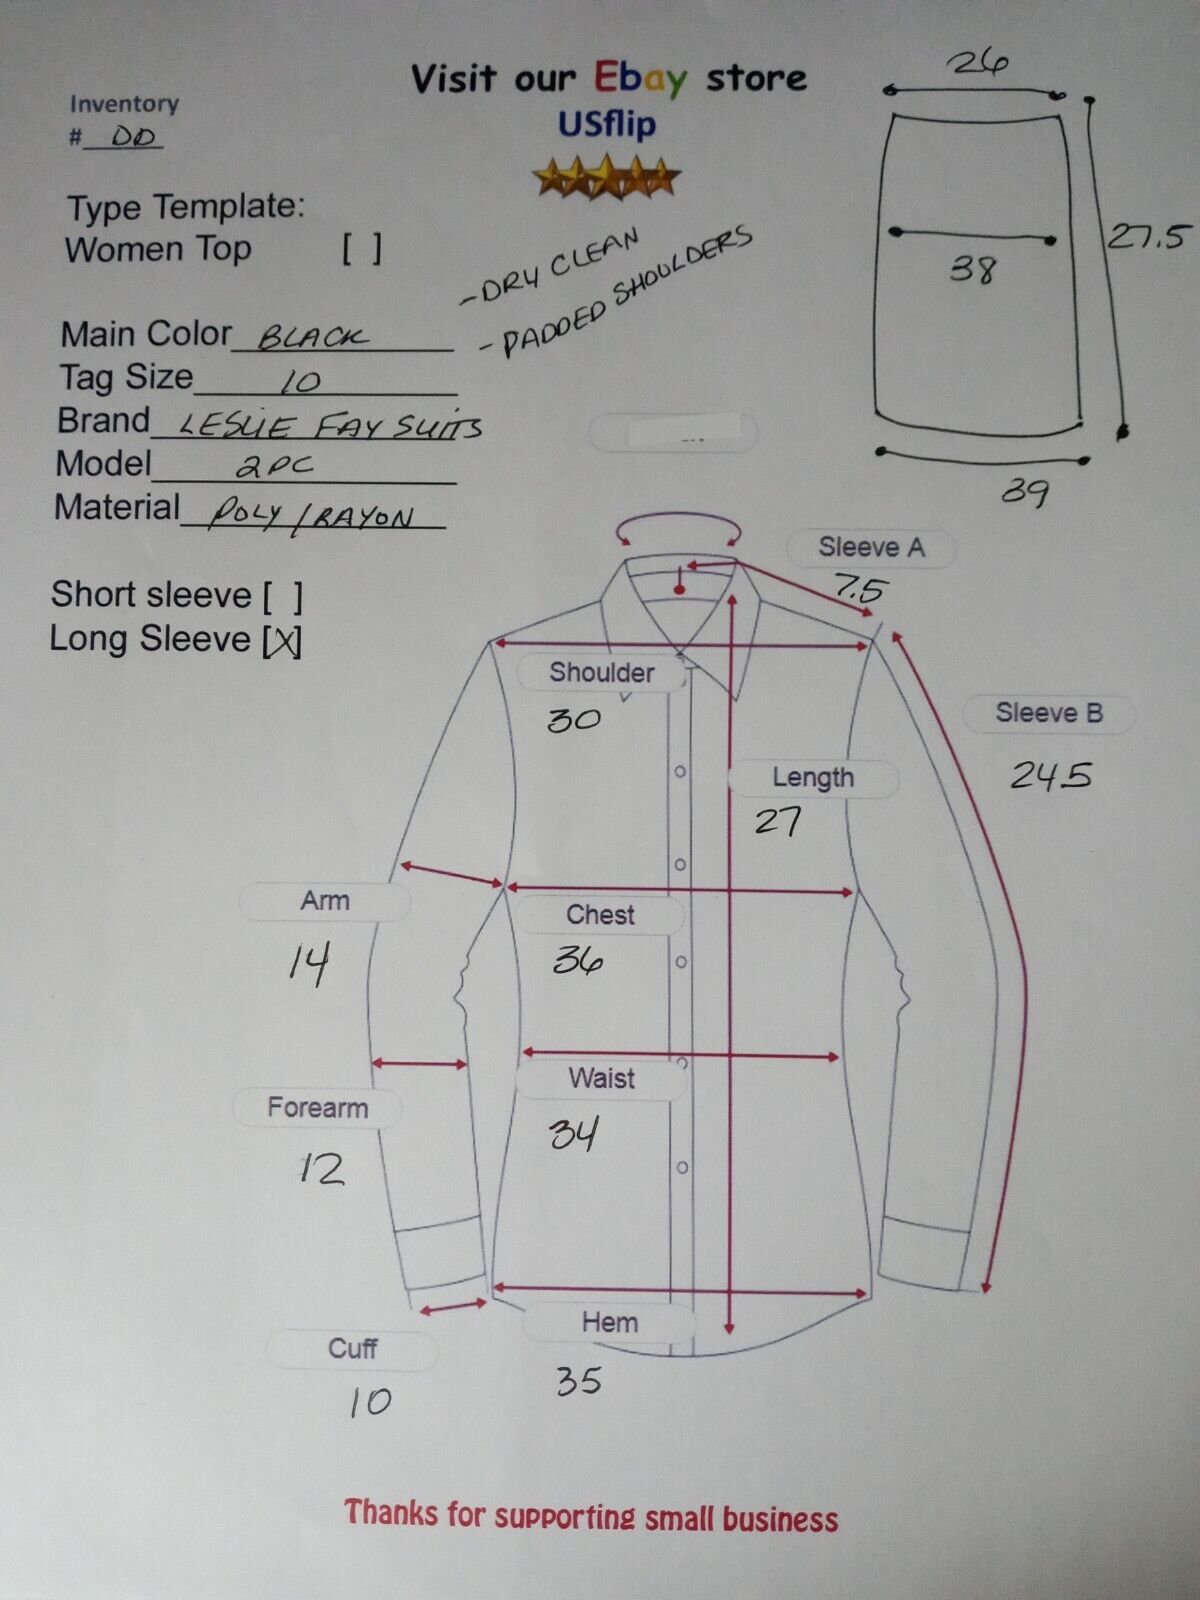 Visit our Ebay store
USflip
Inventory
# DD
Type Template:
Women Top [ ]
- DRY CLEAN
- PADDED SHOULDERS
Main Color BLACK
Tag Size 10
Brand LESLIE FAY SUITS
Model 2PC
Material POLY / RAYON
Short sleeve [ ]
Long Sleeve [X]
26
38
27.5
39
Sleeve A
7.5
Shoulder
30
Sleeve B
24.5
Length
27
Arm
14
Chest
36
Waist
34
Forearm
12
Hem
35
Cuff
10
Thanks for supporting small business